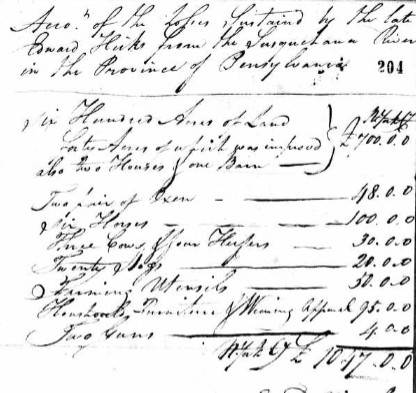 Acco.t of the losses Sustaind by the late
Edward Hicks from the Susquehana River
in the Province of Pensylvania 204
Six Hundred Acres of Land
Acres of which was improved £ 700.0.0
also two Houses & one Barn
Two pair of Oxen - 48.0.0
Six Horses 100.0.0
Three Cows & four Heifers 30.0.0
Twenty Hogs 20.0.0
Farming Utensils 30.0.0
Household Furniture & Wearing Apparel 95.0.0
Two Guns 4.0.0
£ 1047.0.0